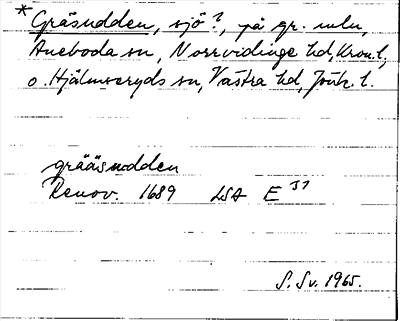 * Gräsudden, sjö?, på gr. mln,
Aneboda sn, Norrvidinge hd, Kron. l.,
o. Hjälmseryds sn, Västra hd, Jönk. l.
grääsudden
Renov. 1689 LSA E 31
S. Sv. 1965.